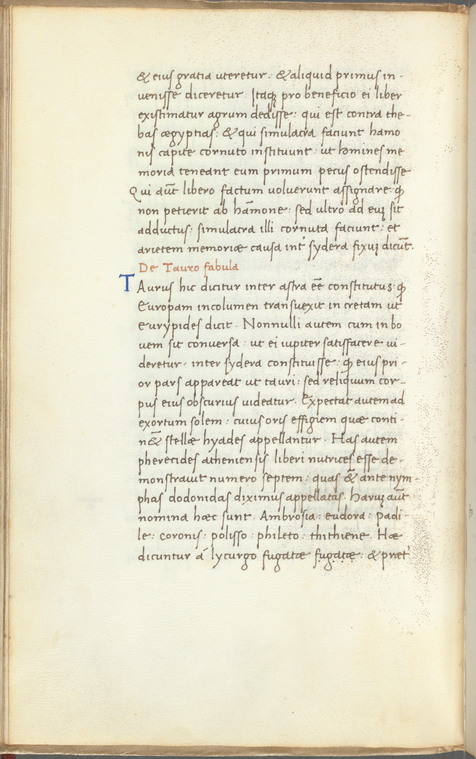 & eius gratia uteretur · & aliquid primus in-
uenisse diceretur · Itaq; pro beneficio ei liber
existimatur agrum dedisse · qui est contra the-
bas ægyptias · & qui simulacra faciunt hamo
nis capite cornuto instituunt · ut homines me
moria teneant eum primum pecus ostendisse
Qui aūt libero factum uoluerunt assignare · ꝙ
non petierit ab hāmone · sed ultro ad euꝫ sit
adductus · simulacra illi cornuta faciunt · et
arietem memoriæ causa int̕ sydera fixuꝫ dicūt.
De Tauro fabula
TAurus hic dicitur inter astra eē constitutus · ꝙ
Europam incolumen transuexit in cretam ut
eurypides dicit · Nonnulli autem cum in bo
uem sit conuersa · ut ei iupiter satisfacere ui-
deretur · inter sydera constituisse · ꝙ eius pri-
or pars appareat ut tauri · sed reliquum cor-
pus eius obscurius uideatur · Expectat autem ad
exortum solem · cuius oris effigiem quæ conti-
n&̄ stellæ hyades appellantur · Has autem
pherecides atheniensis liberi nutrices esse de-
monstrauit numero septem · quas &̄ ante nym-
phas dodonidas diximus appellatas · Haruꝫ aūt
nomina hæc sunt · Ambrosia · eudora · padi-
le · coronis · polisso · phileto · thithiene · Hæ
dicuntur á lycurgo fugatæ fugatæ · & præt̕